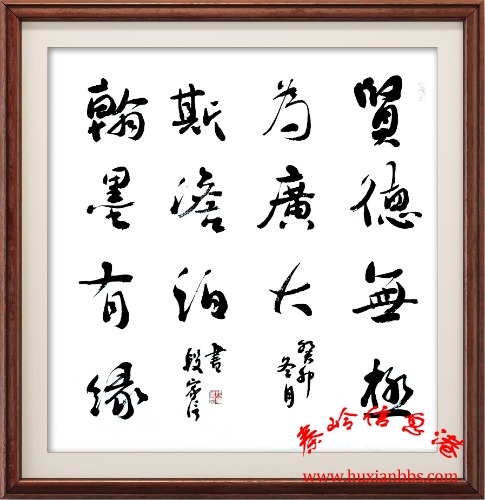 賢德無極
為廣大
癸卯冬月
斯澹泊
書
段家信
翰墨有緣
秦岭信息港
www.huxianbbs.com